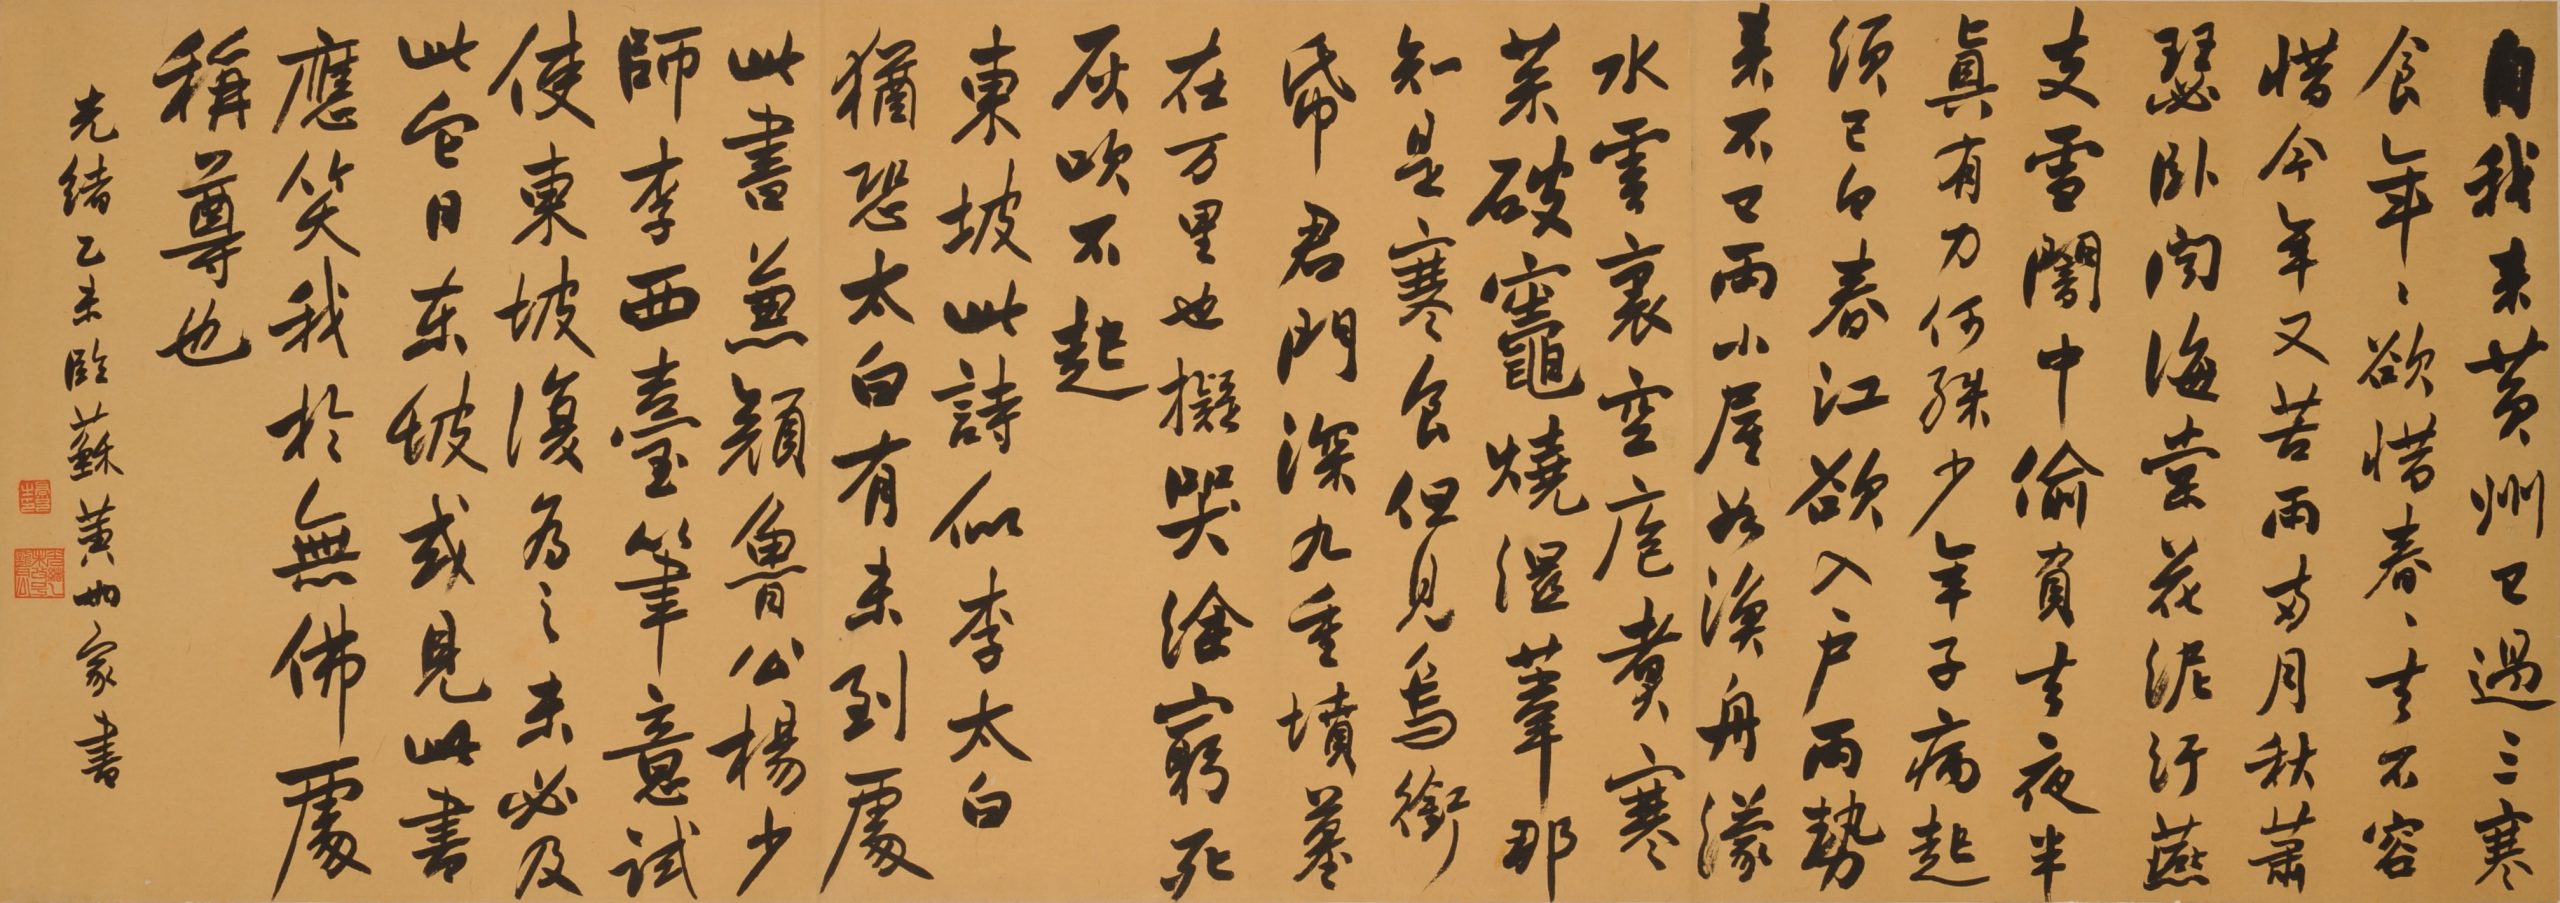 自我来黄州已過三寒
食年〻欲惜春〻去不容
惜今年又苦雨两月秋蕭
瑟臥闻海棠花泥汙燕
支雪闇中偷負去夜半
真有力何殊少年子病起
須已白春江欲入户雨勢
来不已雨小屋如漁舟濛
水雲裏空庖煮寒
菜破竈燒溼葦那
知是寒食但見烏銜
帋君門深九重墳墓
在万里也擬哭塗窮死
灰吹不起
東坡此詩似李太白
猶恐太白有未到處
此書兼顏魯公楊少
師李西臺筆意試
使東坡復為之未必及
此它日东坡或見此書
應笑我於無佛處
稱尊也
光緒乙未臨蘇黄 家書